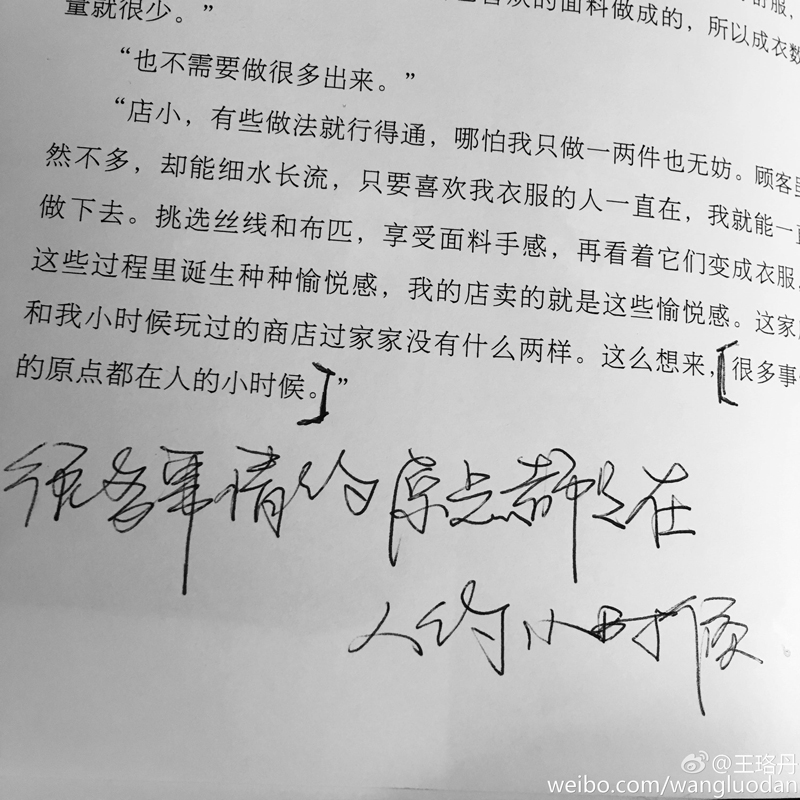 喜欢的面料做成的，所以成衣数
量就很少。”
“也不需要做很多出来。”
“店小，有些做法就行得通，哪怕我只做一两件也无妨。顾客
然不多，却能细水长流，只要喜欢我衣服的人一直在，我就能一直
做下去。挑选丝线和布匹，享受面料手感，再看着它们变成衣服，
这些过程里诞生种种愉悦感，我的店卖的就是这些愉悦感。这家
和我小时候玩过的商店过家家没有什么两样。这么想来，[很多事
的原点都在人的小时候。]”
很多事情的原点都是在
人的小时候
@王珞丹
weibo.com/wangluodan